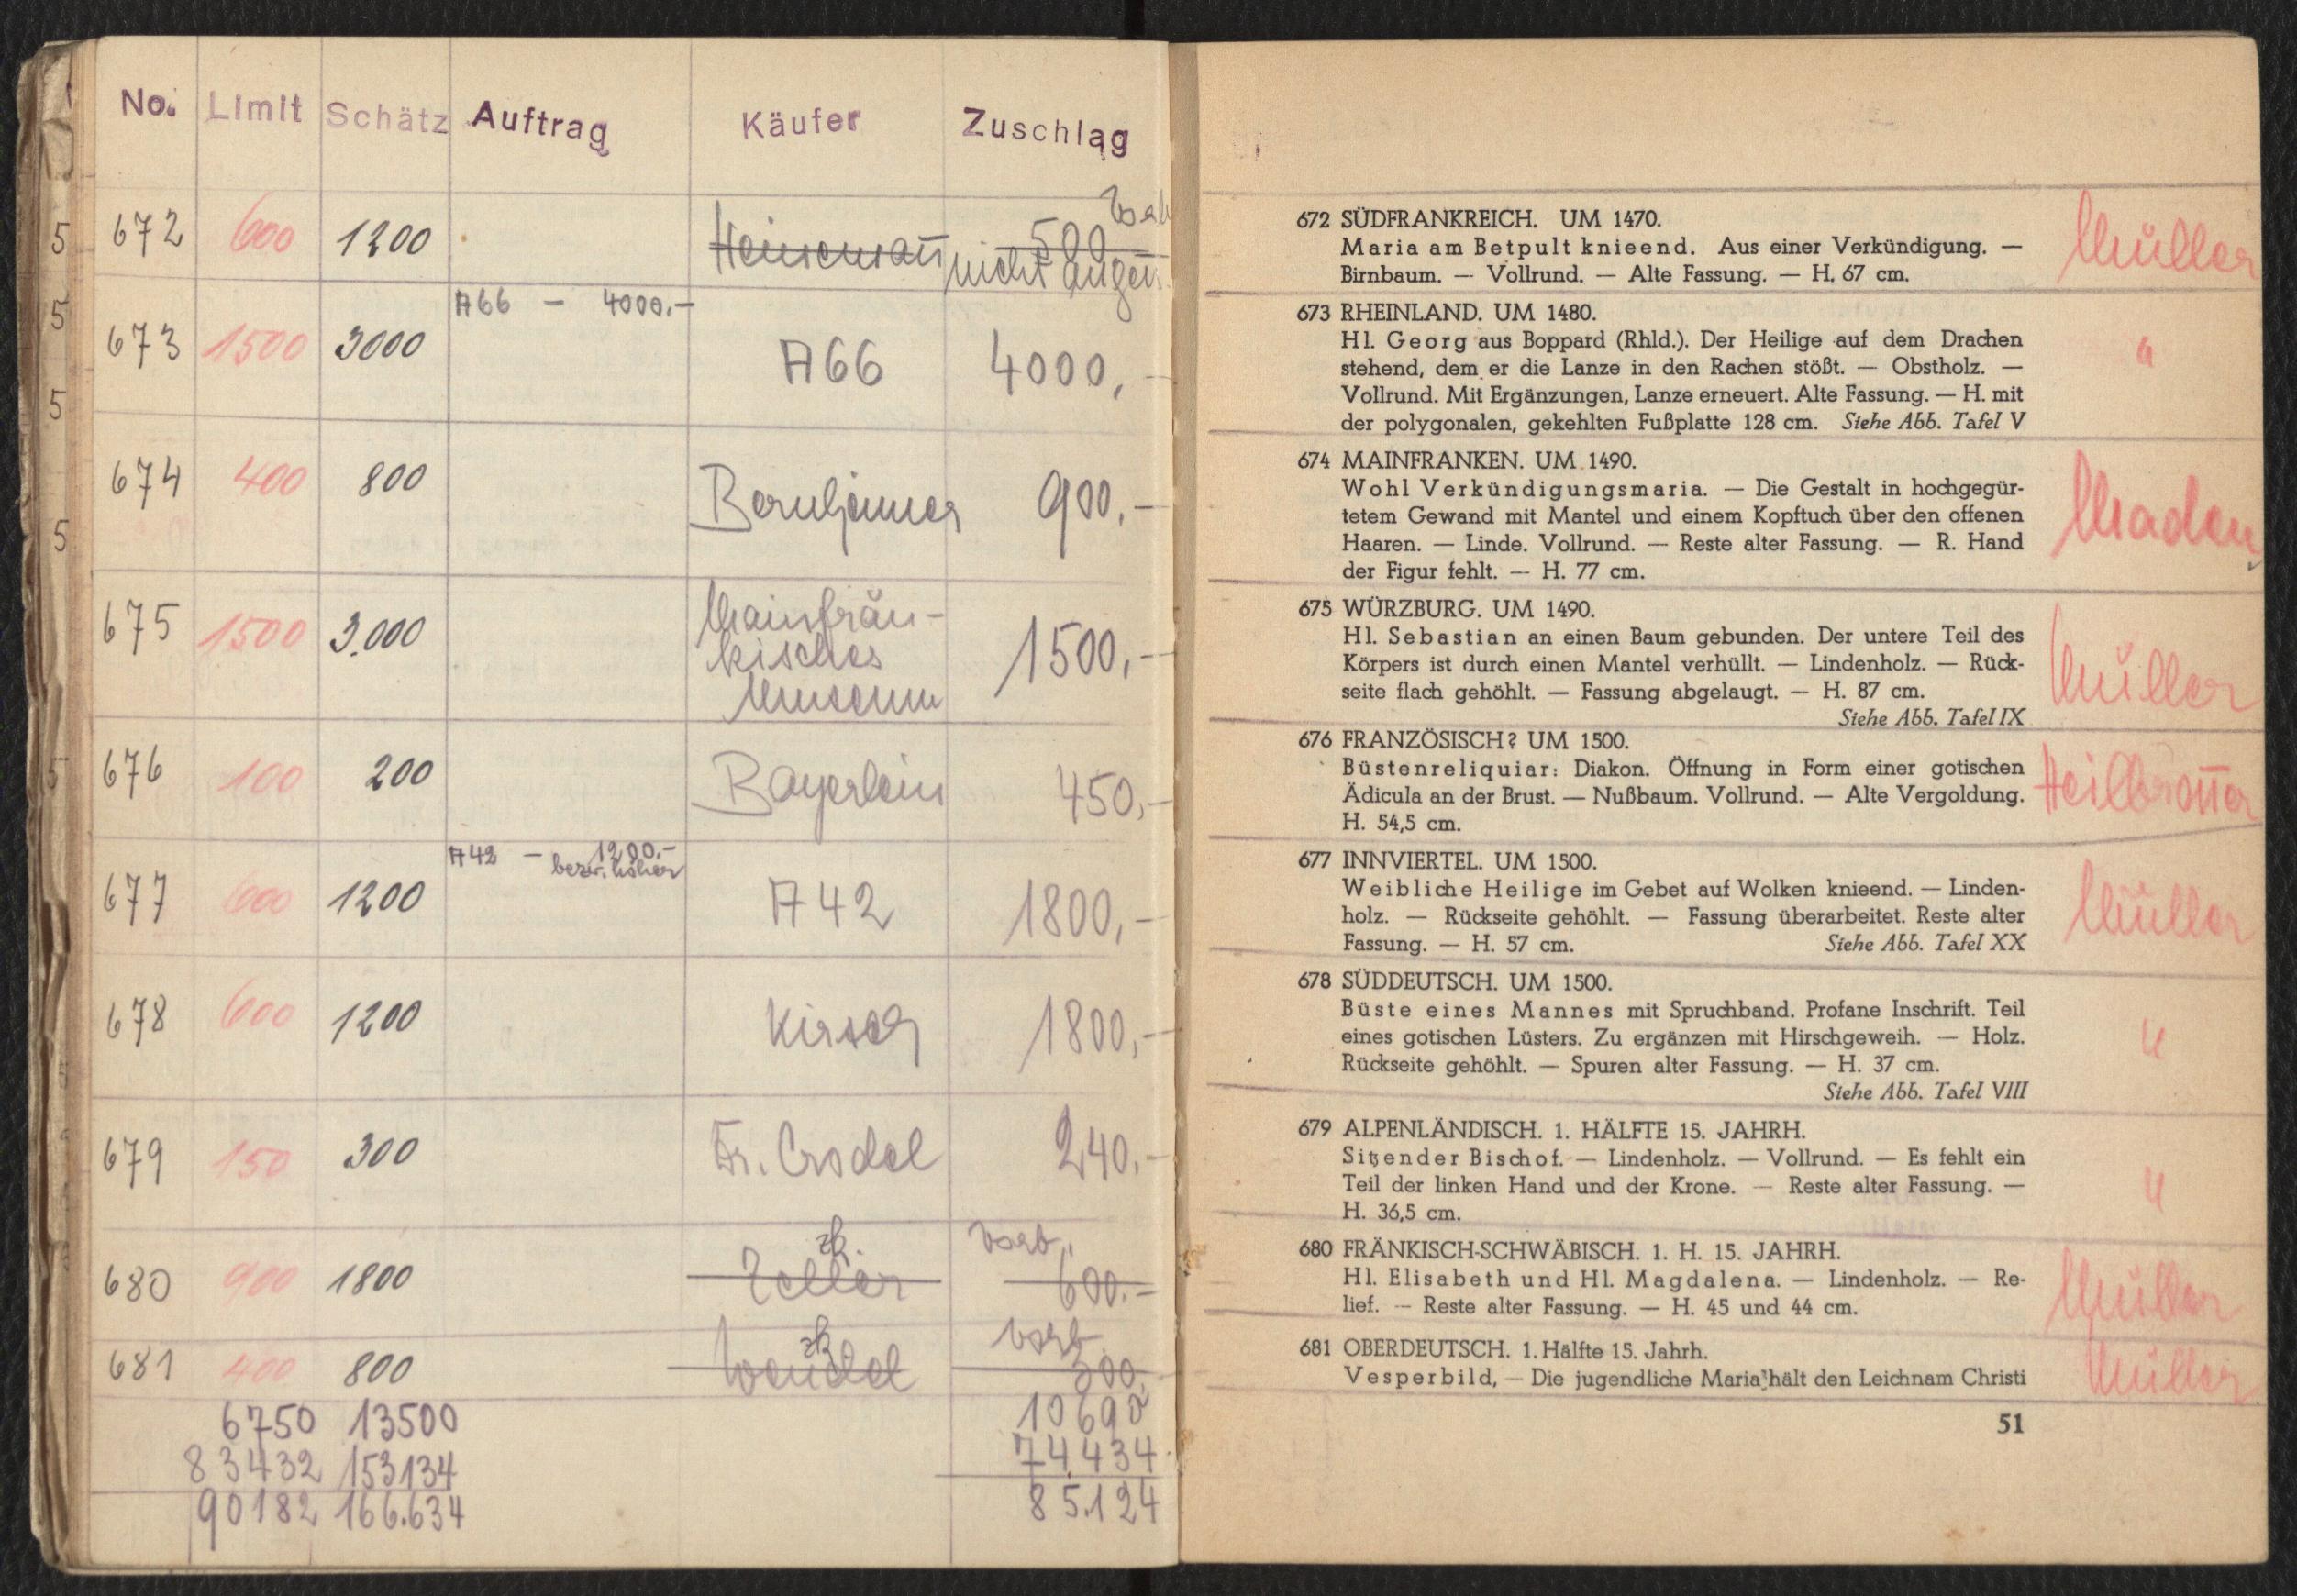 No. Limit Schätz Auftrag Käufer Zuschlag
5 672 600 1200 Heinemann 500
nicht angen.
A66 – 4000.–
5 673 1500 3000 A66 4000,–
5
674 400 800 Bernheimer 900.–
5
675 1500 3.000 Mainfrän-
kisches
Museum 1500,–
5 676 100 200 Bayerlein 450,–
A42 – 1200.–
bezw. höher
677 600 1200 A42 1800,–
678 600 1200 Kirsch 1800,–
679 150 300 Fr. Crodel 240.–
zk. vorb.
680 900 1800 Zeller 600.–
zk vorb
681 400 800 Wendel 300.
6750 13500 10690
83432 153134 74.434
90182 166.634 85.124
672 SÜDFRANKREICH. UM 1470.
Maria am Betpult knieend. Aus einer Verkündigung. —
Birnbaum. — Vollrund. — Alte Fassung. — H. 67 cm.
Müller
673 RHEINLAND. UM 1480.
Hl. Georg aus Boppard (Rhld.). Der Heilige auf dem Drachen
stehend, dem er die Lanze in den Rachen stößt. — Obstholz. —
Vollrund. Mit Ergänzungen, Lanze erneuert. Alte Fassung. — H. mit
der polygonalen, gekehlten Fußplatte 128 cm. Siehe Abb. Tafel V
"
674 MAINFRANKEN. UM 1490.
Wohl Verkündigungsmaria. — Die Gestalt in hochgegür-
tetem Gewand mit Mantel und einem Kopftuch über den offenen
Haaren. — Linde. Vollrund. — Reste alter Fassung. — R. Hand
der Figur fehlt. — H. 77 cm.
675 WÜRZBURG. UM 1490.
Hl. Sebastian an einen Baum gebunden. Der untere Teil des
Körpers ist durch einen Mantel verhüllt. — Lindenholz. — Rück-
seite flach gehöhlt. — Fassung abgelaugt. — H. 87 cm.
Siehe Abb. Tafel IX
Müller
676 FRANZÖSISCH? UM 1500.
Büstenreliquiar: Diakon. Öffnung in Form einer gotischen
Ädicula an der Brust. — Nußbaum. Vollrund. — Alte Vergoldung.
H. 54,5 cm.
Heilbronner
677 INNVIERTEL. UM 1500.
Weibliche Heilige im Gebet auf Wolken knieend. — Linden-
holz. — Rückseite gehöhlt. — Fassung überarbeitet. Reste alter
Fassung. — H. 57 cm. Siehe Abb. Tafel XX
Müller
678 SÜDDEUTSCH. UM 1500.
Büste eines Mannes mit Spruchband. Profane Inschrift. Teil
eines gotischen Lüsters. Zu ergänzen mit Hirschgeweih. — Holz.
Rückseite gehöhlt. — Spuren alter Fassung. — H. 37 cm.
Siehe Abb. Tafel VIII
"
679 ALPENLÄNDISCH. 1. HÄLFTE 15. JAHRH.
Sitzender Bischof. — Lindenholz. — Vollrund. — Es fehlt ein
Teil der linken Hand und der Krone. — Reste alter Fassung. —
H. 36,5 cm.
"
680 FRÄNKISCH-SCHWÄBISCH. 1. H. 15. JAHRH.
Hl. Elisabeth und Hl. Magdalena. — Lindenholz. — Re-
lief. — Reste alter Fassung. — H. 45 und 44 cm.
Müller
681 OBERDEUTSCH. 1. Hälfte 15. Jahrh.
Vesperbild, — Die jugendliche Maria hält den Leichnam Christi
Müller
51